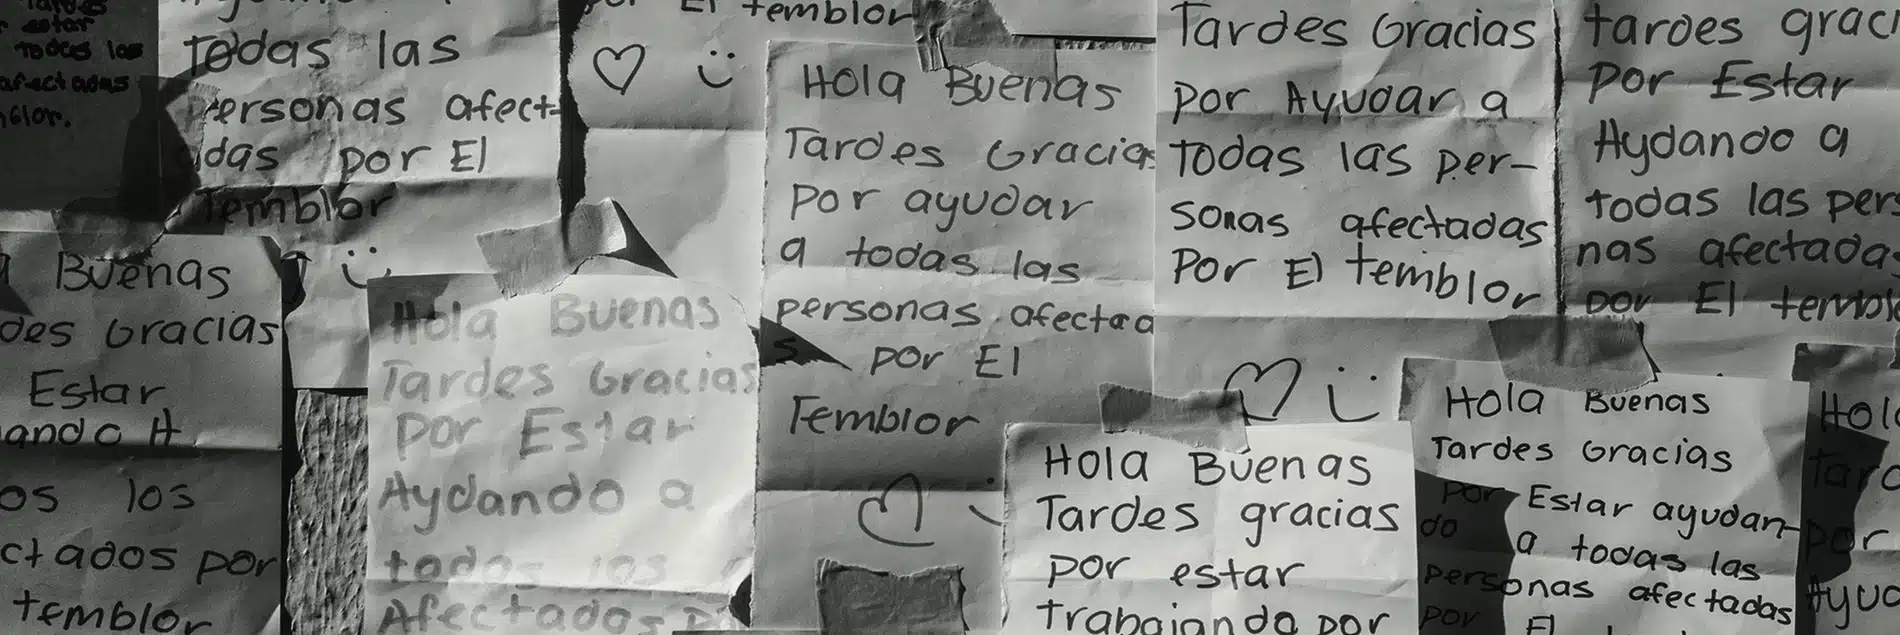 estar
todas las
afectadas
todas las
personas afect-
adas por El
Temblor
Buenas
des Gracias
Estar
ando A
os los
ctados por
temblor
El temblor
Hola Buenas
Tardes Gracias
por Estar
Aydando a
todos los
Afectados
Hola Buenas
Tardes Gracias
Por ayudar
a todas las
personas afectada
s por El
Temblor
Hola Buenas
Tardes gracias
por estar
trabajando por
Tardes Gracias
por Ayudar a
Todas las per-
sonas afectadas
Por El temblor
Hola Buenas
Tardes Gracias
por Estar ayudan-
do a todas las
personas afectadas
por El
tardes grac
por Estar
Aydando a
todas las pers
nas afectada
por El temblo
Hol
Tard
por
Ayud